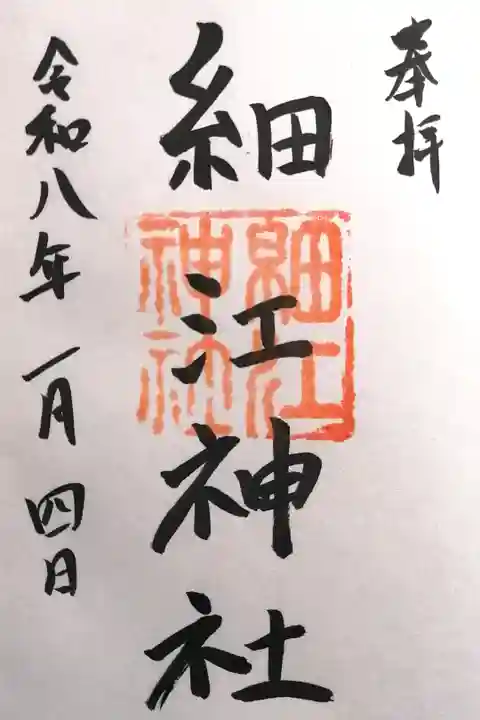 奉拝
細江神社
細江
神社
令和八年一月四日